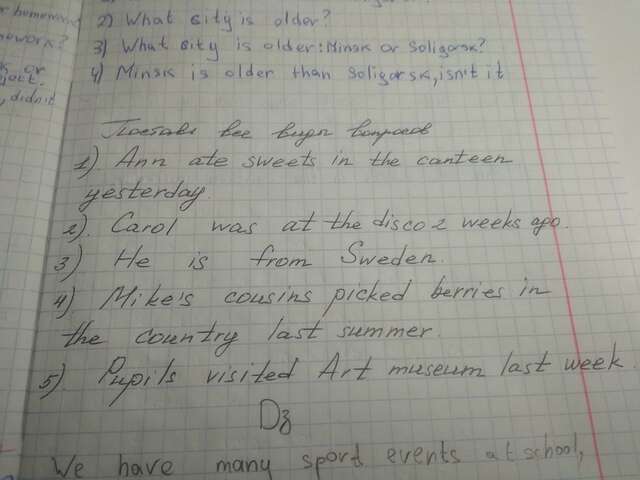 r homework
ework?
k or
ject
, didn't
2) What city is older?
3) What city is older: Minsk or Soligorsk?
4) Minsk is older than Soligorsk, isn't it
Поставь все виды вопросов
1). Ann ate sweets in the canteen
yesterday.
2). Carol was at the disco 2 weeks ago.
3) He is from Sweden.
4) Mike's cousins picked berries in
the country last summer.
5). Pupils visited Art museum last week.
Dz
We have many sport events at school,